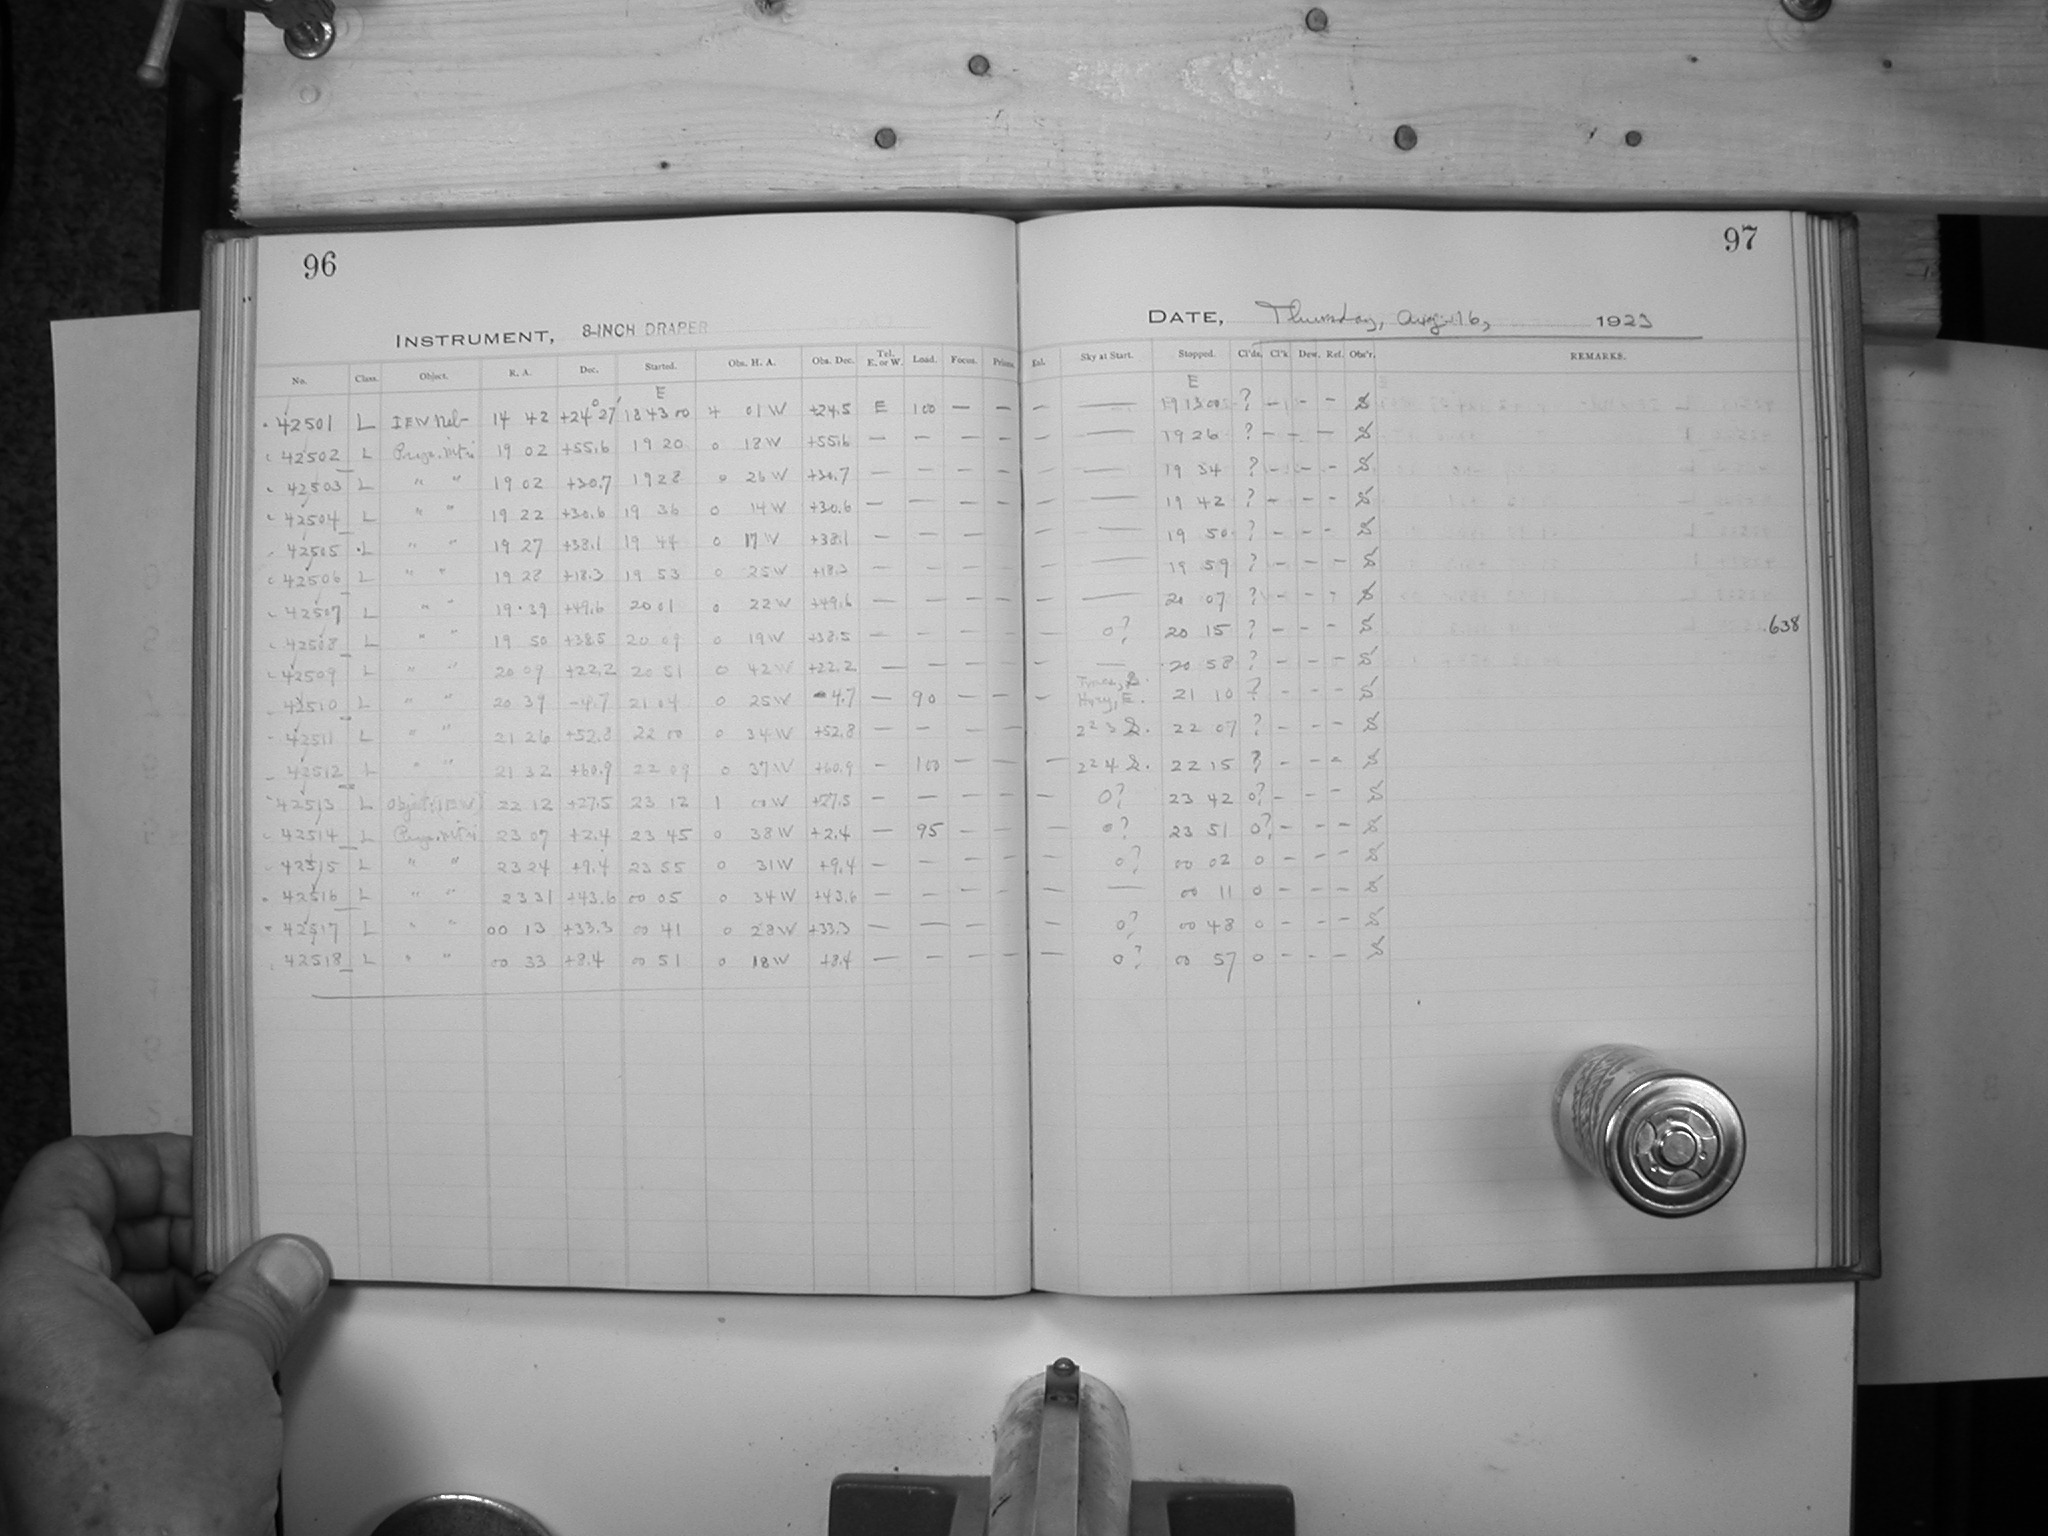 96
97
INSTRUMENT, 8-INCH DRAPER
DATE, Thursday, Aug. 16, 1923
No. Class. Object. R. A. Dec. Started. Obs. H. A. Obs. Dec. Tel. E. or W. Load. Focus. Prisms. Eal. Sky at Start. Stopped. Cl'ds. Cl'k Dew. Ref. Obs'r. REMARKS.
E E
42501 L IEW Neb- 14 42 +24° 27' 18 43 00 4 01 W +24.5 E 100 — — — — 19 13 00 ? - - - S
42502 L 19 02 +55.6 19 20 0 18 W +55.6 — — — — — — 19 26 ? - - - S
42503 L " " 19 02 +30.7 19 28 0 26 W +30.7 — — — — — — 19 34 ? - - - S
42504 L " " 19 22 +30.6 19 36 0 14 W +30.6 — — — — — — 19 42 ? - - - S
42505 L " " 19 27 +38.1 19 44 0 17 W +38.1 — — — — — — 19 50 ? - - - S
42506 L " " 19 28 +18.3 19 53 0 25 W +18.3 — — — — — — 19 59 ? - - - S
42507 L " " 19 39 +49.6 20 01 0 22 W +49.6 — — — — — — 20 07 ? - - - S
42508 L " " 19 50 +38.5 20 09 0 19 W +38.5 — — — — — 0? 20 15 ? - - - S .638
42509 L " " 20 09 +22.2 20 51 0 42 W +22.2 — — — — — — 20 58 ? - - - S
42510 L " " 20 39 -4.7 21 04 0 25 W -4.7 — 90 — — — Hazy, E. 21 10 ? - - - S
42511 L " " 21 26 +52.8 22 00 0 34 W +52.8 — — — — 2 2 3 S. 22 07 ? - - - S
42512 L " " 21 32 +60.9 22 09 0 37 W +60.9 - 100 — — — 2 2 4 S. 22 15 ? - - - S
42513 L Object (IEW) 22 12 +27.5 23 12 1 00 W +27.5 — — — — — 0? 23 42 0? - - - S
42514 L 23 07 +2.4 23 45 0 38 W +2.4 — 95 — — — 0? 23 51 0? - - - S
42515 L " " 23 24 +9.4 23 55 0 31 W +9.4 — — — — — 0? 00 02 0 - - - S
42516 L " " 23 31 +43.6 00 05 0 34 W +43.6 — — — — — — 00 11 0 - - - S
42517 L " " 00 13 +33.3 00 41 0 28 W +33.3 — — — — — 0? 00 48 0 - - - S
42518 L " " 00 33 +8.4 00 51 0 18 W +8.4 — — — — — 0? 00 57 0 - - - S